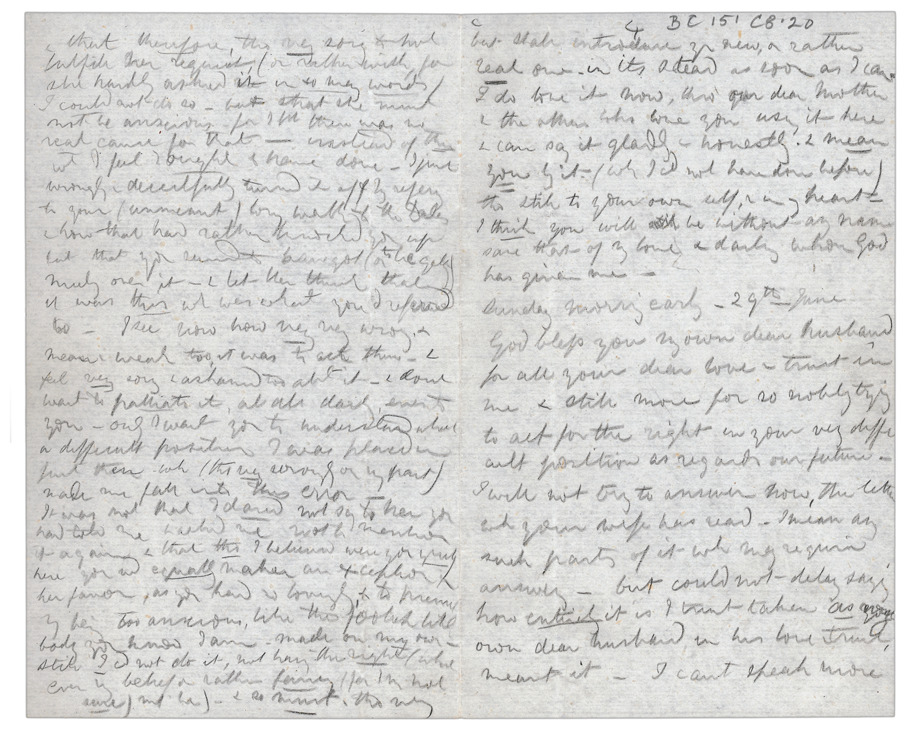 BC 151 CB'20
that therefore, tho' very sorry & hurt
fulfil her request (or rather wish for
she hardly asked it in so many words)
I could not do so - but that she must
not be anxious for I there was no
real cause for that - instead of
I feel I ought & have done - I just
wrongly & deceitfully turned it off by
to your (unmeant) long walk the
& how that had rather knocked you up
but that you
over it - & let her think that
it was this wh was what you'd referred
too - I see now how very very wrong &
mean & weak too it was to act thus - &
feel very sorry & ashamed too abt it - & dont
want to palliate it, at all darling, even to
you - only I want you to understand what
a difficult position I was placed in
just then wh (tho' very wrong on my part)
made me fall into this error -
It was not that I dared not say to her you
had told me & asked me not to mention
it again & that tho' I believed were you
here you wd equally make an exception in
her favor, as you had so lovingly, & to
my being too anxious, like the foolish little
body you know I am, made on my own -
still I cd not do it, not having the right (
even my belief a rather fancy (for I'm not
sure) - & so must, tho' very
but shall introduce yr new, or rather
real one in its stead as soon as I can.
I do love it now, thro' our dear Mother
& the others who love you using it here
& can say it gladly & honestly & mean
you by it - (wh I'd not have done before)
tho' still to your own self, & in my heart -
I think you will be without any name
save that of my love & darling whom God
has given me -
Sunday morning early - 29th June
God bless you my own dear husband
for all your dear love & trust in
me & still more for so nobly trying
to act for the right in your very diffi
cult position as regards our future -
I will not try to answer now, the letter
wh your wife has read - I mean any
such parts of it wh may require
answering - but could not delay saying
how entirely it is I trust taken as my
own dear husband, in his love & trust,
meant it - I can't speak more